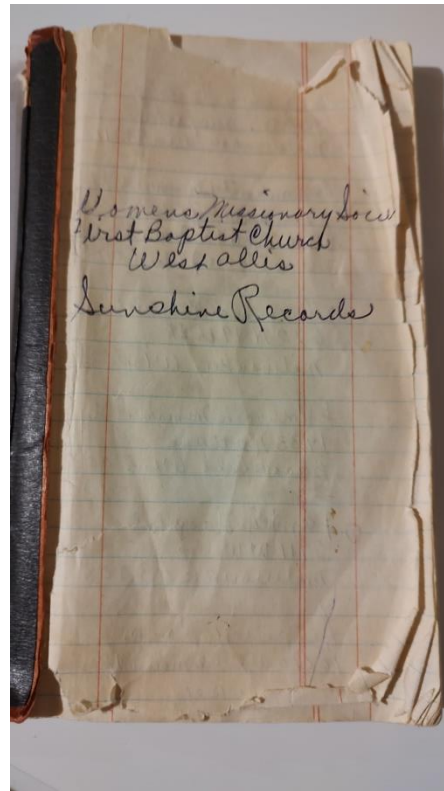 Womens Missionary Soci
First Baptist Church
West Allis
Sunshine Records